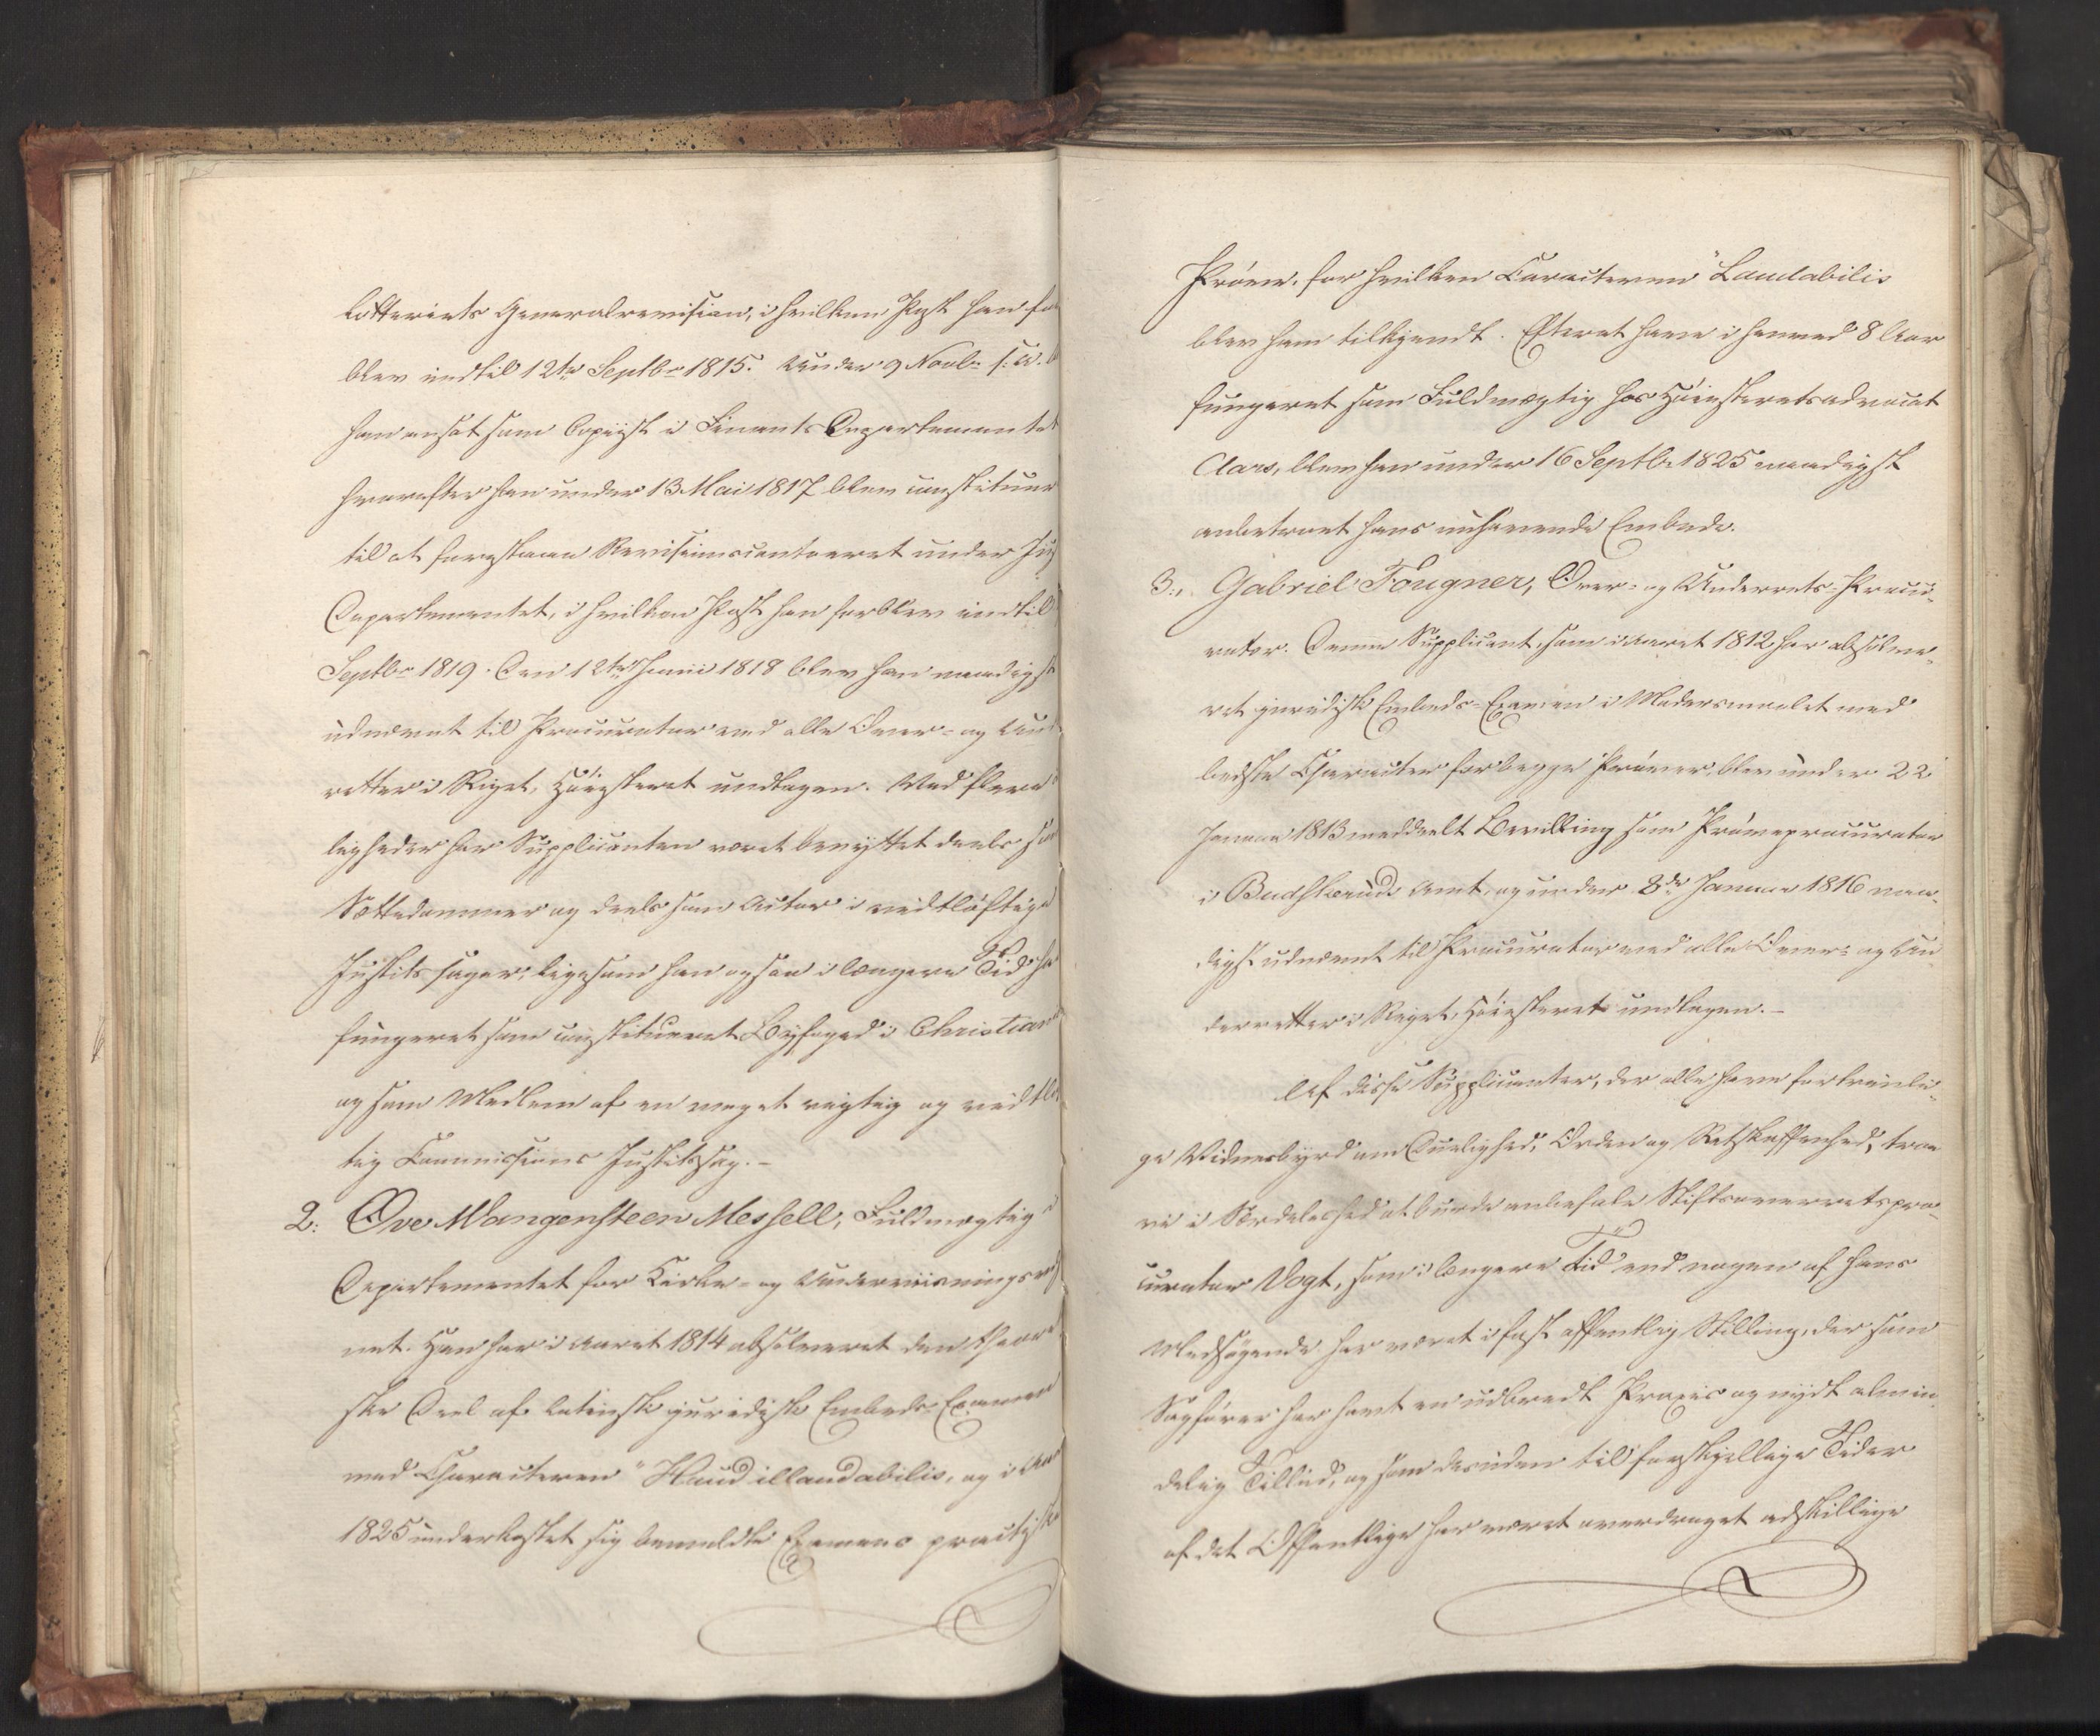 Lotteriets Generalrevision, i hvilken Post han for
blev indtil 12te Septbr 1815. Under 9 Novbr s. A. b
han ansat som Copiist i Finants Departementet
hvorefter han under 13 Mai 1817 blev constituer
til at forestaae Revisionscontoret under Jus
Departementet, i hvilken Post han forblev indtil
Septbr 1819. Den 12te Junii 1818 blev han naadigst
udnævnt til Procurator ved alle Over- og Und
retter i Riget, Høiesteret undtagen. Ved flere
ligheder har Supplicanten været benyttet deels som
Sættedommer og deels som Actor i vidtløftige
Justits sager, ligesom han ogsaa i længere Tid ha
fungeret som constitueret Byfoged i Christian
og som Medlem af en meget vigtig og vidtløf
tig Commissions Justitssag.-
2. Ove Wangensteen Messell, Fuldmægtig i
Departementet for Kirke- og Underviisningsvæs
net. Han har i Aaret 1814 absolveret den theore
ske Deel af latinsk juridisk Embeds Examen
med Characteren "Haud illaudabilis, og i Aar
1825 underkastet sig bemeldte Examens practiske
Prøve, for hvilken Caracteren "Laudabilis
blev ham tilkjendt. Efterat have i henved 8 Aar
fungeret som Fuldmægtig hos Høiesteretsadvocat
Aars, blev han under 16 Septbr 1825 naadigst
anbetroet hans nuhavende Embede.
3., Gabriel Fougner, Over- og Underrets-Procu-
rator. Denne Supplicant, som i Aaret 1812 har absolve-
ret juridisk Embeds-Examen i Modersmaalet med
bedste Character for begge Prøver, blev under 22
Januar 1813 meddeelt Bevilling som Prøveprocurator
i Budskeruds Amt, og under 8de Januar 1816 naa-
digst udnævnt til Procurator ved alle Over- og Un
derretter i Riget, Høiesteret undtagen.-
Af disse Supplicanter, der alle have fortrinli-
ge Vidnesbyrd om Duelighed, Orden og Retskaffenhed, troe
vi i Særdeleshed at burde anbefale Stiftsoverretspro-
curator Vogt, som i længere Tid end nogen af hans
Medsøgende har været i fast offentlig Stilling, der som
Sagfører har havt en udbredt Praxis og nydt almin
delig Tillid, og som desuden til forskjellige Tider
af det Offentlige har været overdraget adskillige